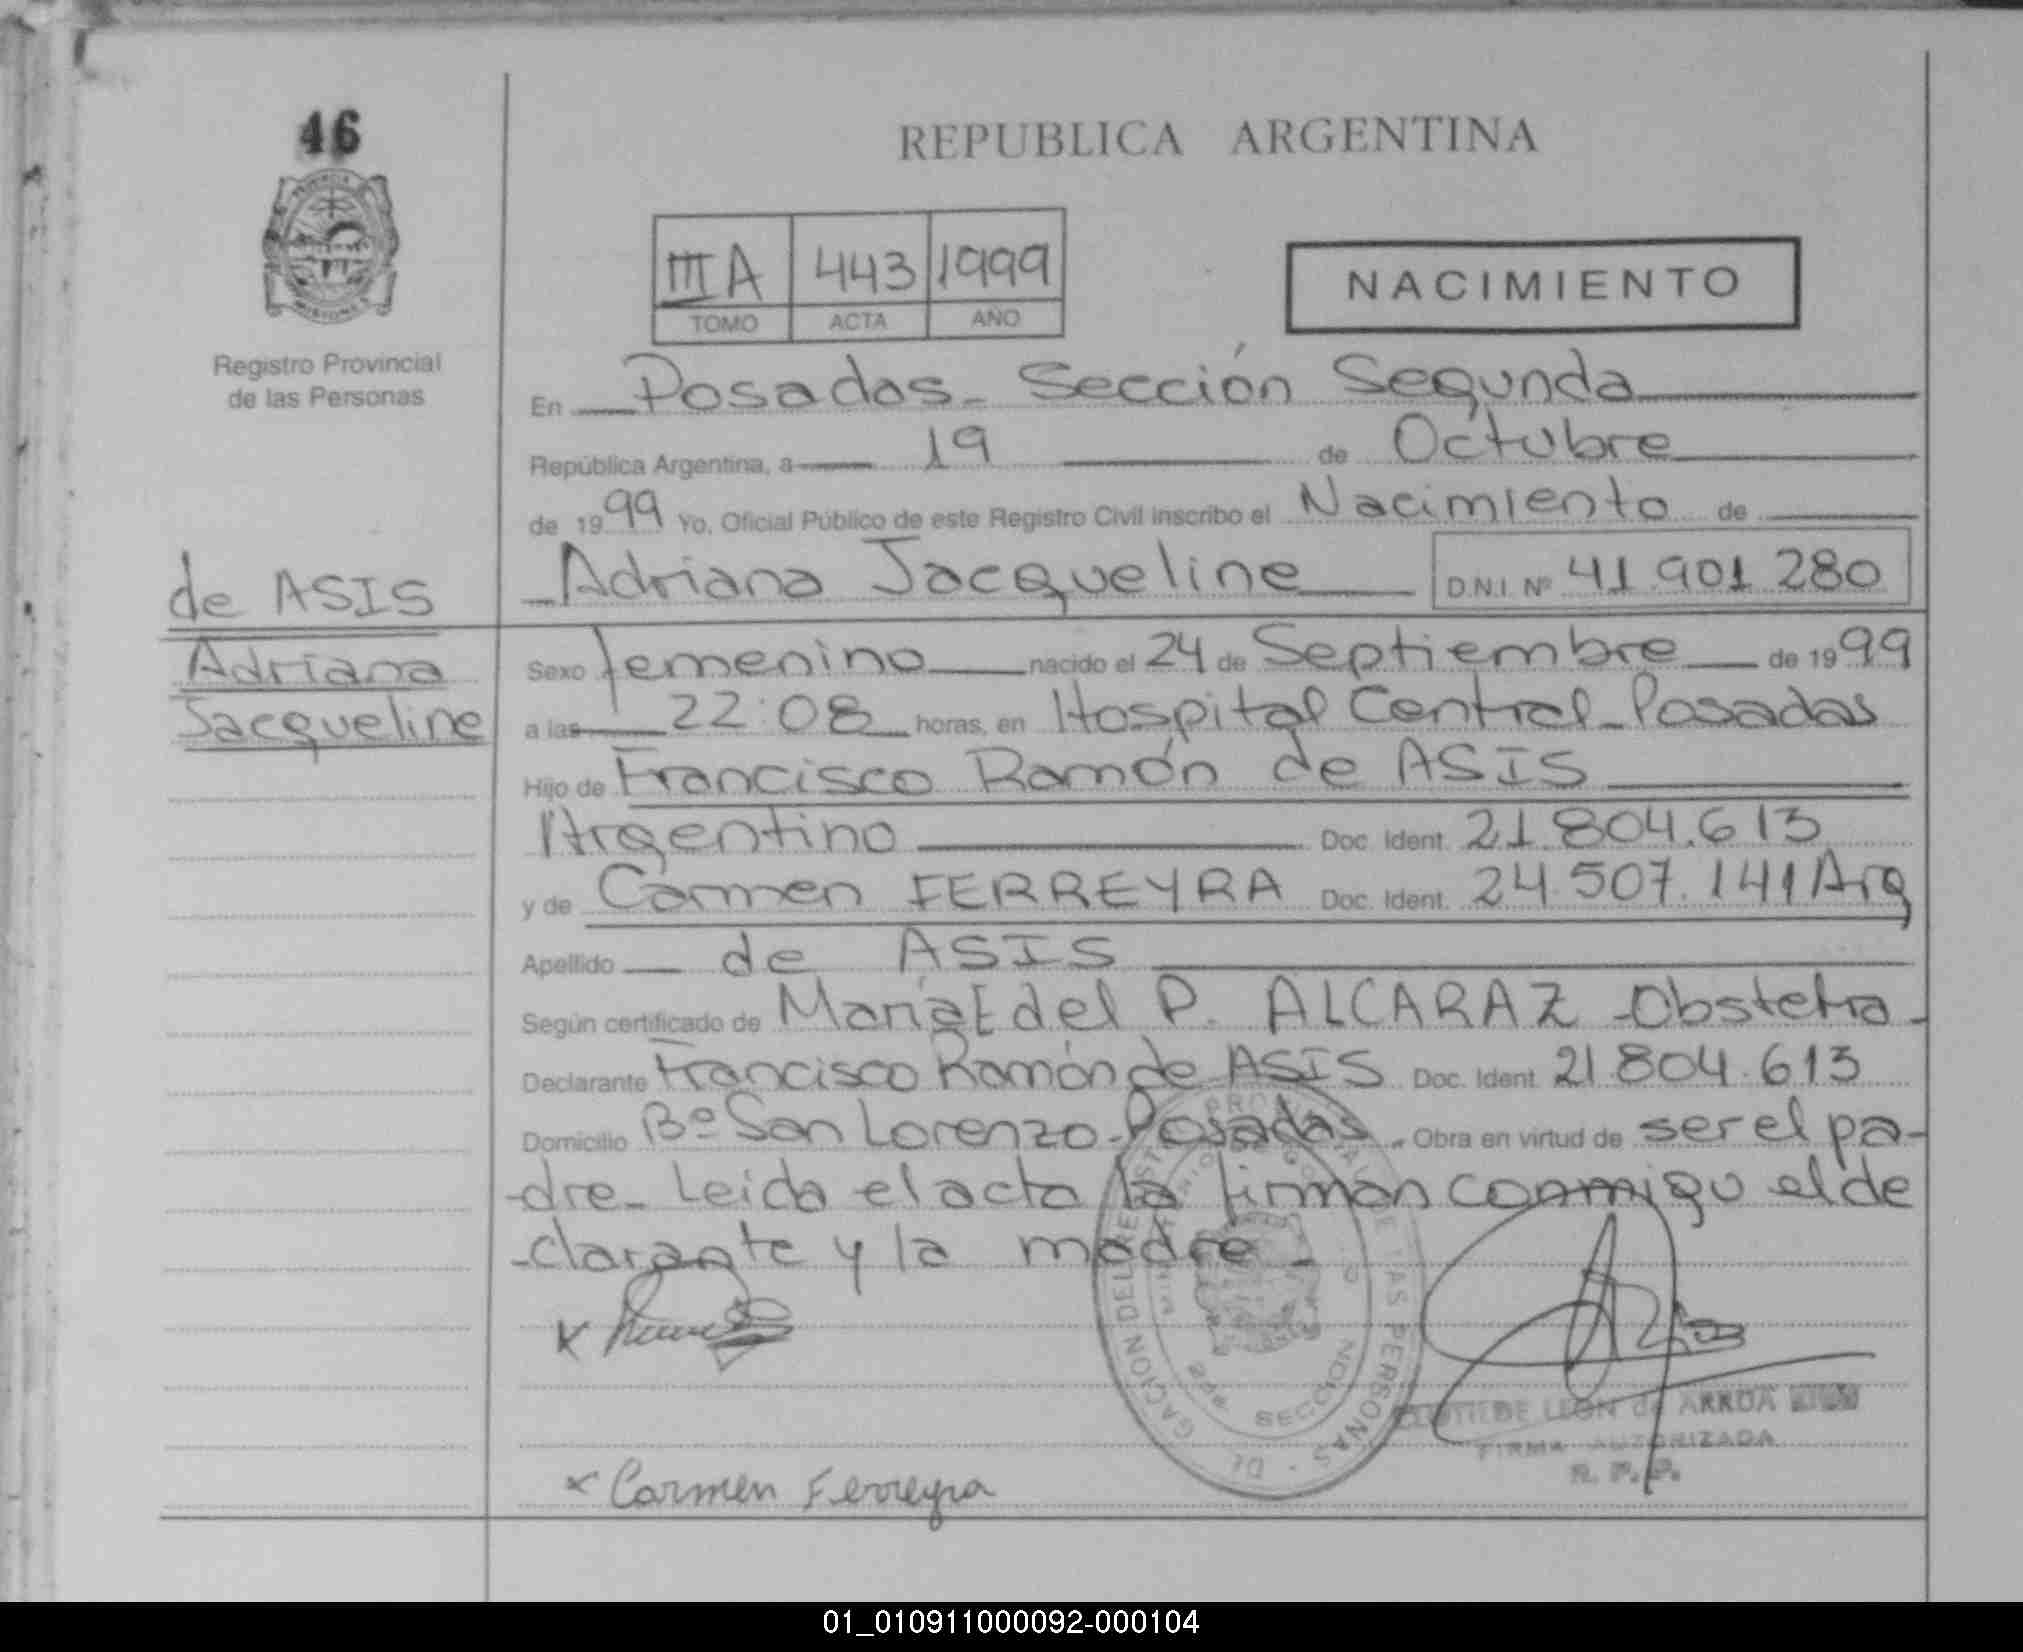 46
REPUBLICA ARGENTINA
III A 443 1999
TOMO ACTA AÑO
NACIMIENTO
Registro Provincial
de las Personas
En Posadas - Sección Segunda
República Argentina, a 19 de Octubre
de 1999 Yo, Oficial Público de este Registro Civil inscribo el Nacimiento de
Adriana Jacqueline D.N.I. Nº 41.901.280
de ASIS
Adriana
Jacqueline
Sexo femenino nacido el 24 de Septiembre de 1999
a las 22:08 horas, en Hospital Central - Posadas
Hijo de Francisco Ramón de ASIS
Argentino Doc. Ident. 21.804.613
y de Carmen FERREYRA Doc. Ident. 24.507.141 Arg
Apellido de ASIS
Según certificado de María E del P. ALCARAZ - Obstetra -
Declarante Francisco Ramón de ASIS Doc. Ident. 21.804.613
Domicilio Bº San Lorenzo - Posadas. Obra en virtud de ser el pa-
-dre - Leida el acta la firman conmigo el de
-clarante y la madre -
DELEGACION DEL REGISTRO PROVINCIAL DE LAS PERSONAS
SECCION
x
LEON de ARRUA
FIRMA AUTORIZADA
R. P. P.
x Carmen Ferreyra
01_010911000092-000104